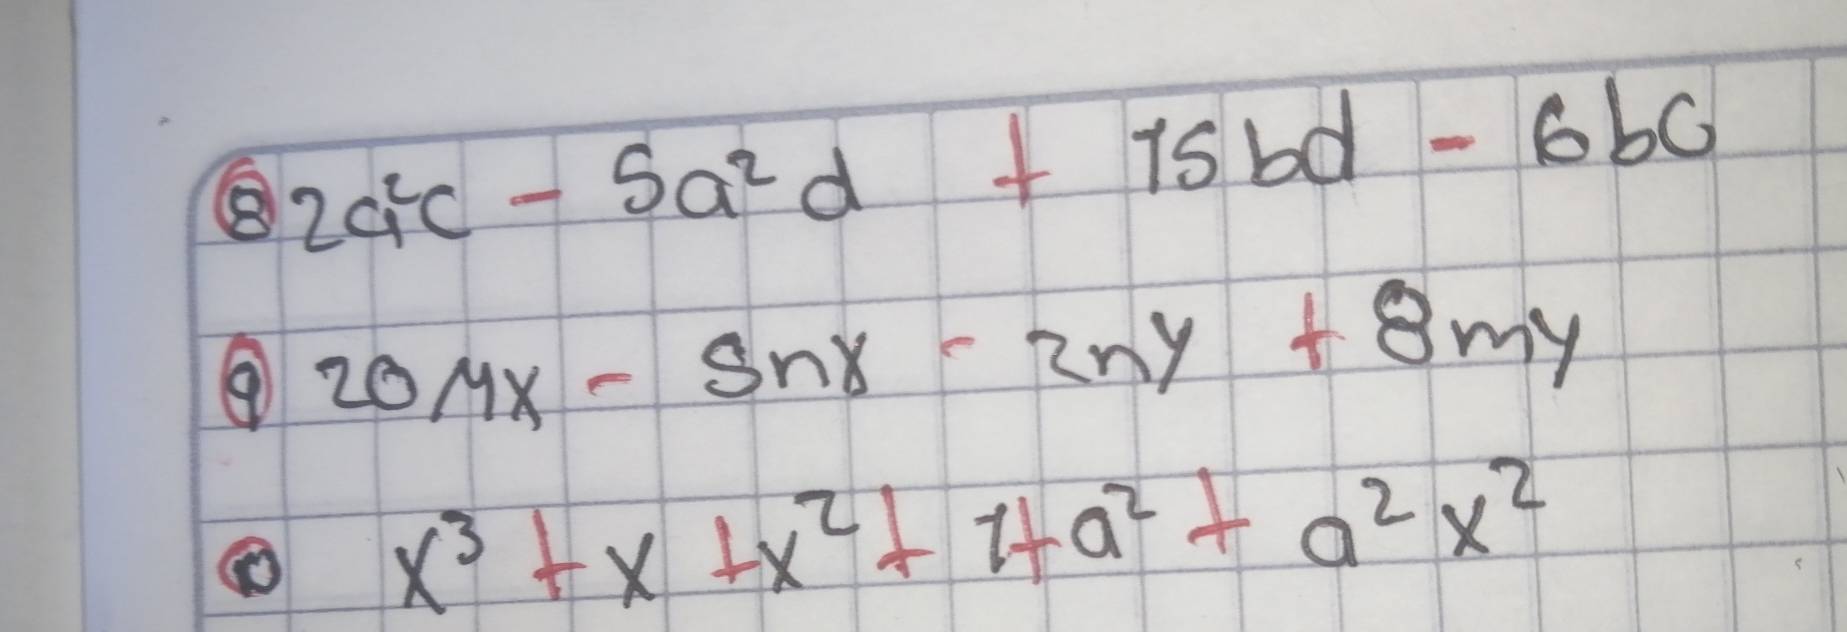 ⑧ 2a²c - 5a²d + 15bd - 6bc
⑨ 20mx - 5nx - 2ny + 8my
⑩ x³ + x + x² + 1 + a² + a²x²